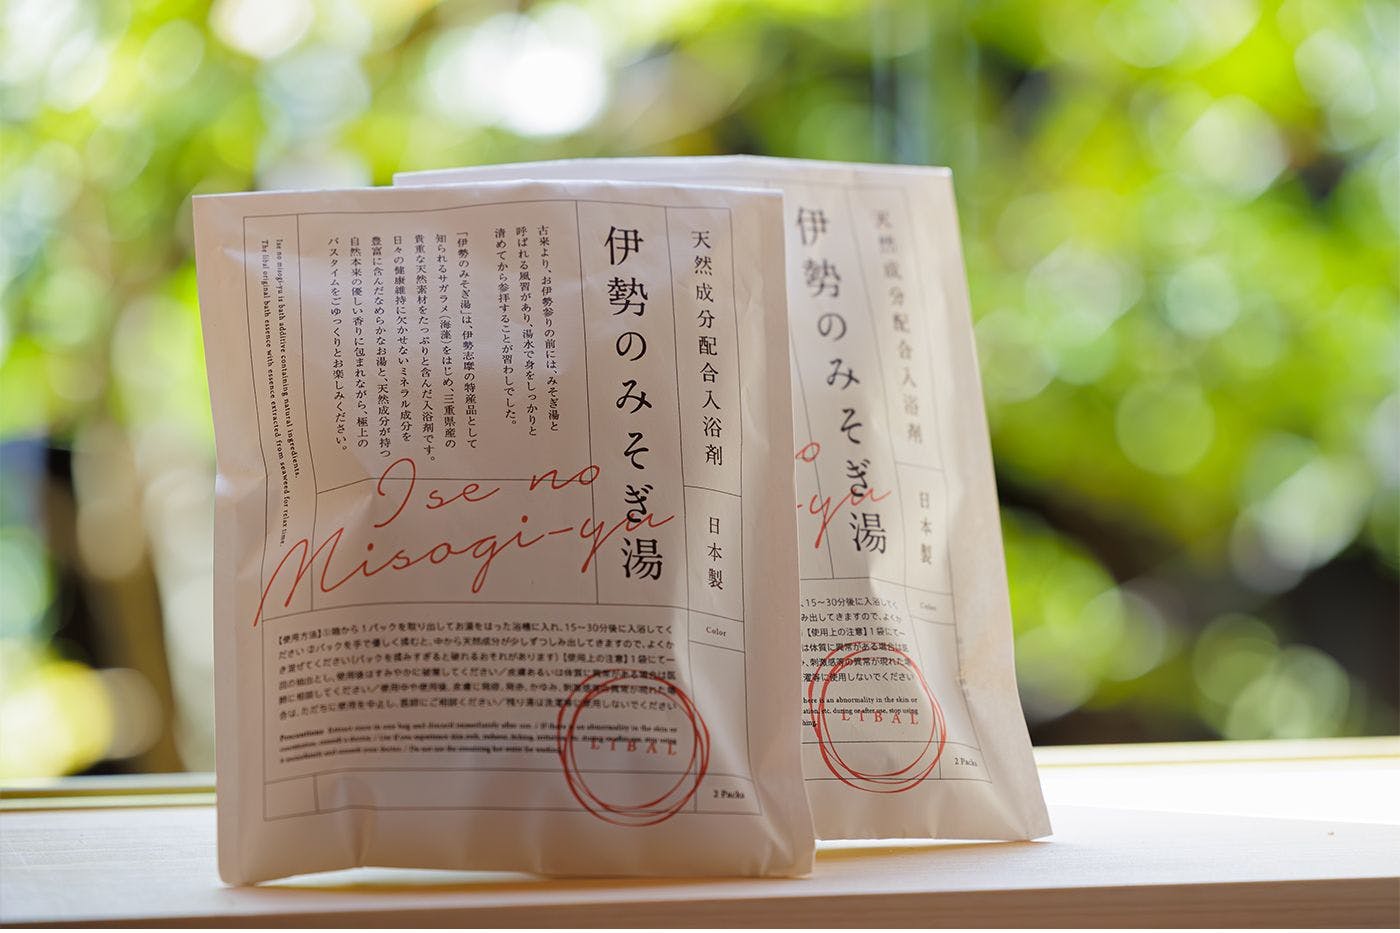 天然成分配合入浴剤
日本製
Color
伊勢のみそぎ湯
古来より、お伊勢参りの前には、みそぎ湯と
呼ばれる風習があり、湯水で身をしっかりと
清めてから参拝することが習わしでした。
「伊勢のみそぎ湯」は、伊勢志摩の特産品として
知られるサガラメ(海藻)をはじめ、三重県産の
貴重な天然素材をたっぷりと含んだ入浴剤です。
日々の健康維持に欠かせないミネラル成分を
豊富に含んだなめらかなお湯と、天然成分が持つ
自然本来の優しい香りに包まれながら、極上の
バスタイムをごゆっくりとお楽しみください。
Ise no misogi-yu is bath additive containing natural ingredients.
The libal original bath essence with essence extracted from seaweed for relax time.
Ise no
Misogi-yu
【使用方法】①箱から1パックを取り出してお湯をはった浴槽に入れ、15〜30分後に入浴してく
ださい ②パックを手で優しく揉むと、中から天然成分が少しずつしみ出してきますので、よくか
き混ぜてください(パックを揉みすぎると破れるおそれがあります)【使用上の注意】1袋にて一
回の抽出とし、使用後はすみやかに破棄してください/皮膚あるいは体質に異常がある場合は医
師に相談してください/使用中や使用後、皮膚に発疹、発赤、かゆみ、刺激感等の異常が現れた場
合は、ただちに使用を中止し、医師にご相談ください/残り湯は洗濯等に使用しないでください
Precautions Extract once in one bag and discard immediately after use / If there is an abnormality in the skin or
LIBAL
2 Packs
天然成分配合入浴剤
日本製
Color
伊勢のみそぎ湯
o
-yu
、15〜30分後に入浴してく
み出してきますので、よくか
【使用上の注意】1袋にて一
は体質に異常がある場合は医
、刺激感等の異常が現れた場
濯等に使用しないでください
here is an abnormality in the skin or
ation, etc. during or after use, stop using
hing.
LIBAL
2 Packs